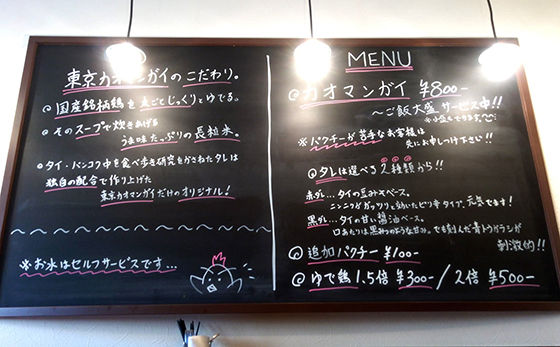 東京カオマンガイのこだわり。
◎国産銘柄鶏を丸ごとじっくりとゆでる。
◎そのスープで炊きあげる
うま味たっぷりの長粒米。
◎タイ・バンコク中を食べ歩き研究をかさねたタレは
独自の配合で作り上げた
東京カオマンガイだけのオリジナル!
※お水はセルフサービスです...
MENU
◎カオマンガイ ¥800-
〜ご飯大盛サービス中!!
※パクチーが苦手なお客様は
先にお申しつけ下さい!!
◎タレは選べる2種類から!!
赤ダレ...タイの豆みそベース。
ニンニクがガッツリと効いたピリ辛タイプ。元気でます!
黒ダレ...タイの甘い醤油ベース。
口あたりは黒みつのような甘み。でも刻んだ青トウガラシが
刺激的!!
◎追加パクチー ¥100-
◎ゆで鶏1.5倍 ¥300- / 2倍 ¥500-